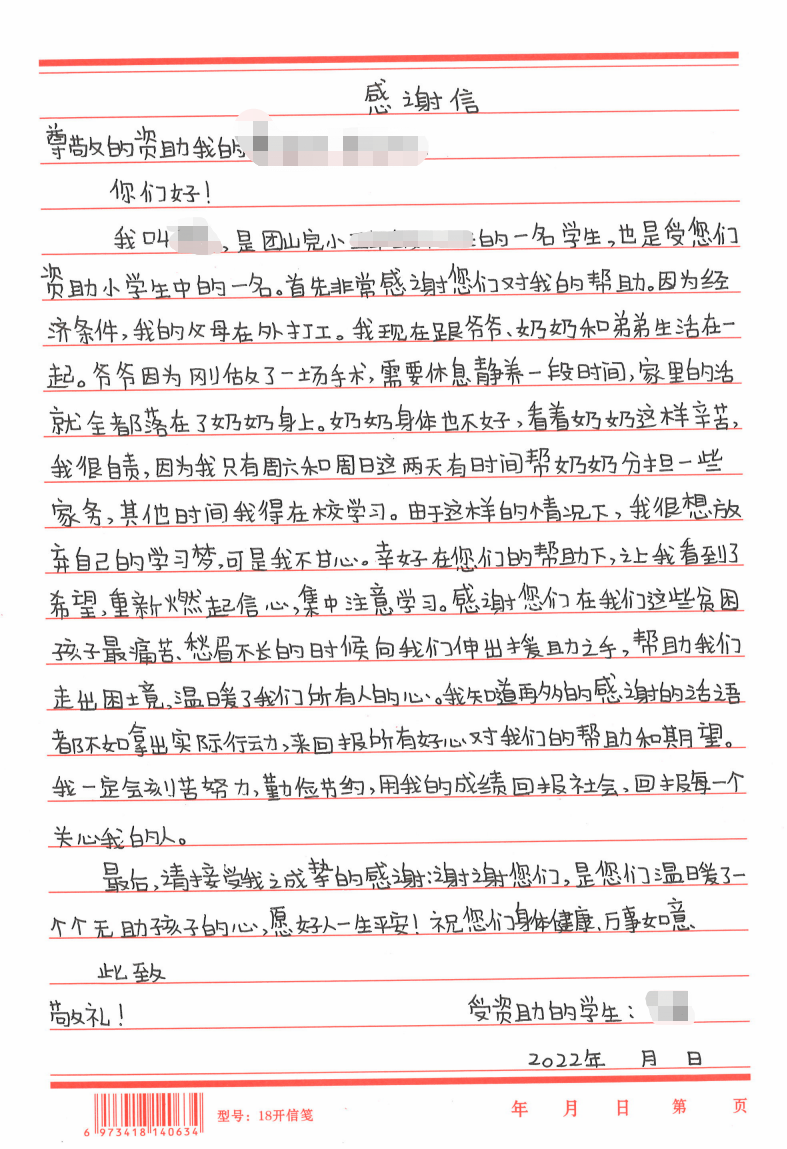 感谢信
尊敬的资助我的
你们好！
我叫，是团山完小的一名学生，也是受您们
资助小学生中的一名。首先非常感谢您们对我的帮助。因为经
济条件，我的父母在外打工。我现在跟爷爷、奶奶和弟弟生活在一
起。爷爷因为刚做了一场手术，需要休息静养一段时间，家里的活
就全都落在了奶奶身上。奶奶身体也不好，看着奶奶这样辛苦，
我很自责，因为我只有周六和周日这两天有时间帮奶奶分担一些
家务，其他时间我得在校学习。由于这样的情况下，我很想放
弃自己的学习梦，可是我不甘心。幸好在您们的帮助下，让我看到了
希望，重新燃起信心，集中注意学习。感谢您们在我们这些贫困
孩子最痛苦、愁眉不长的时候向我们伸出援助之手，帮助我们
走出困境，温暖了我们所有人的心。我知道再多的感谢的话语
都不如拿出实际行动，来回报所有好心对我们的帮助和期望。
我一定会刻苦努力，勤俭节约，用我的成绩回报社会，回报每一个
关心我的人。
最后，请接受我之成挚的感谢：谢谢您们，是您们温暖了一
个个无助孩子的心，愿好人一生平安！祝您们身体健康、万事如意、
此致
敬礼！ 受资助的学生：
2022年 月 日
6 973418 140634 型号：18开信笺 年 月 日 第 页